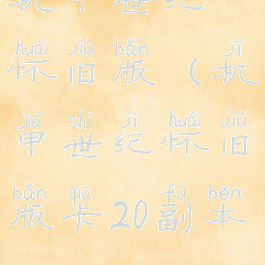 机甲世纪
huái jiù bǎn jī
怀旧版(机
jiǎ shì jì huái jiù
甲世纪怀旧
bǎn qiǎ fù běn
版卡20副本